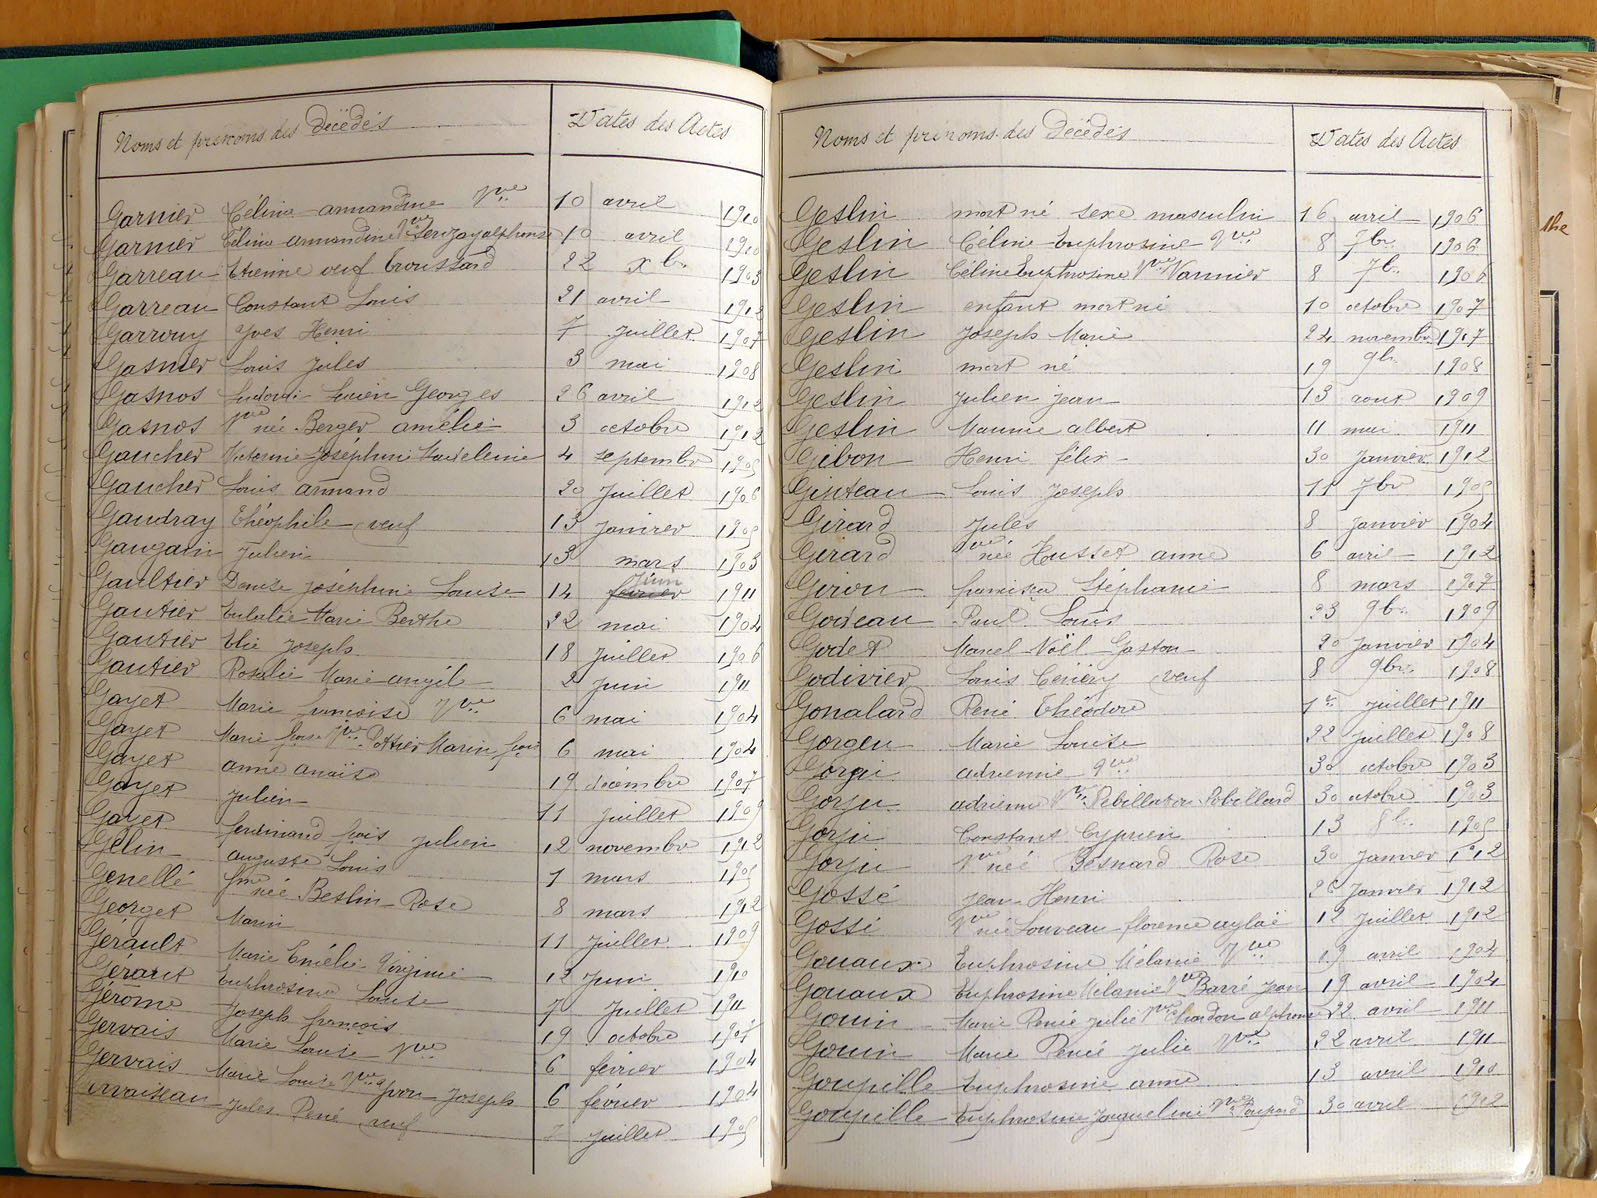 Noms et prénoms des Décédés Dates des Actes
Garnier Céline armandine Vve 10 avril 1910
Garnier Céline armandine Vve alphonse 10 avril 1910
Garreau Etienne veuf Croussard 22 Xbre 1903
Garreau Constant Louis 21 avril 1912
Garrouy Yves Henri 7 Juillet 1907
Gasnier Louis Jules 3 mai 1908
Gasnos Ludovic Lucien Georges 26 avril 1912
Gasnos Vve née Berger amélie 3 octobre 1912
Gaucher Victorine Joséphine Madeleine 4 septembre 1905
Gaucher Louis armand 20 Juillet 1906
Gaudray Théophile veuf 13 Janvier 1905
Gaugain Julien 13 mars 1903
Gaultier Denise Joséphine Louise 14 février Juin 1911
Gautier Eulalie Marie Berthe 22 mai 1904
Gautier Elie Joseph 18 Juillet 1906
Gautier Rosalie Marie angèle 2 Juin 1911
Gayet Marie françoise Vve 6 mai 1904
Gayet Marie foise Vve Pottier Marin fois 6 mai 1904
Gayet anne anaïse 19 decembre 1907
Gayet Julien 11 Juillet 1909
Gayet ferdinand fois Julien 12 novembre 1912
Gélin auguste Louis 1 mars 1905
Genellé fme née Beslin Rose 8 mars 1912
Georget Marin 11 Juillet 1909
Gérault Marie Emélie Virginie 12 Juin 1910
Gérard Euphrosine Louise 7 Juillet 1911
Gérôme Joseph françois 19 octobre 1907
Gervais Marie Louise Vve 6 février 1904
Gervais Marie Louise Vve Yvon Joseph 6 février 1904
Gervaiseau Jules René veuf Juillet 1905
Noms et prénoms des Décédés Dates des Actes
Geslin mort né sexe masculin 16 avril 1906
Geslin Céline Euphrosine Vve 8 7bre 1906
Geslin Céline Euphrosine Vve Vannier 8 7bre 1906
Geslin enfant mort né 10 octobre 1907
Geslin Joseph Marie 24 novembre 1907
Geslin mort né 19 9bre 1908
Geslin Julien Jean 13 aout 1909
Geslin Maurice albert 11 mai 1911
Gibon Henri félix 30 Janvier 1912
Ginteau Louis Joseph 11 7bre 1905
Girard Jules 8 Janvier 1904
Girard Vve née Housset anne 6 avril 1912
Giron francisca Stéphanie 8 mars 1907
Godeau Paul Louis 23 9bre 1909
Godet Marcel Noël Gaston 20 Janvier 1904
Godivier Louis Cénéry veuf 8 9bre 1908
Gonalard René Théodore 1er Juillet 1911
Gorgeu Marie Louise 22 Juillet 1908
Gorju adrienne Vve 30 octobre 1903
Gorju adrienne Vve Rebillard ou Robillard 30 octobre 1903
Gorju Constant Cyprien 13 8bre 1905
Gorju Vve née Besnard Rose 30 Janvier 1912
Gossé Jean Henri 26 Janvier 1912
Gossé Vve née Louveau florence aglaé 12 Juillet 1912
Gouaux Euphrosine Mélanie Vve 19 avril 1904
Gouaux Euphrosine Mélanie Vve Barré Jean 19 avril 1904
Gouin Marie Renée Julie Vve Chardon alphonse 22 avril 1911
Gouin Marie Renée Julie Vve 22 avril 1911
Goupille Euphrosine anne 13 avril 1910
Goupille Euphrosine Jaqueline Vve Poupard 30 avril 1912
the